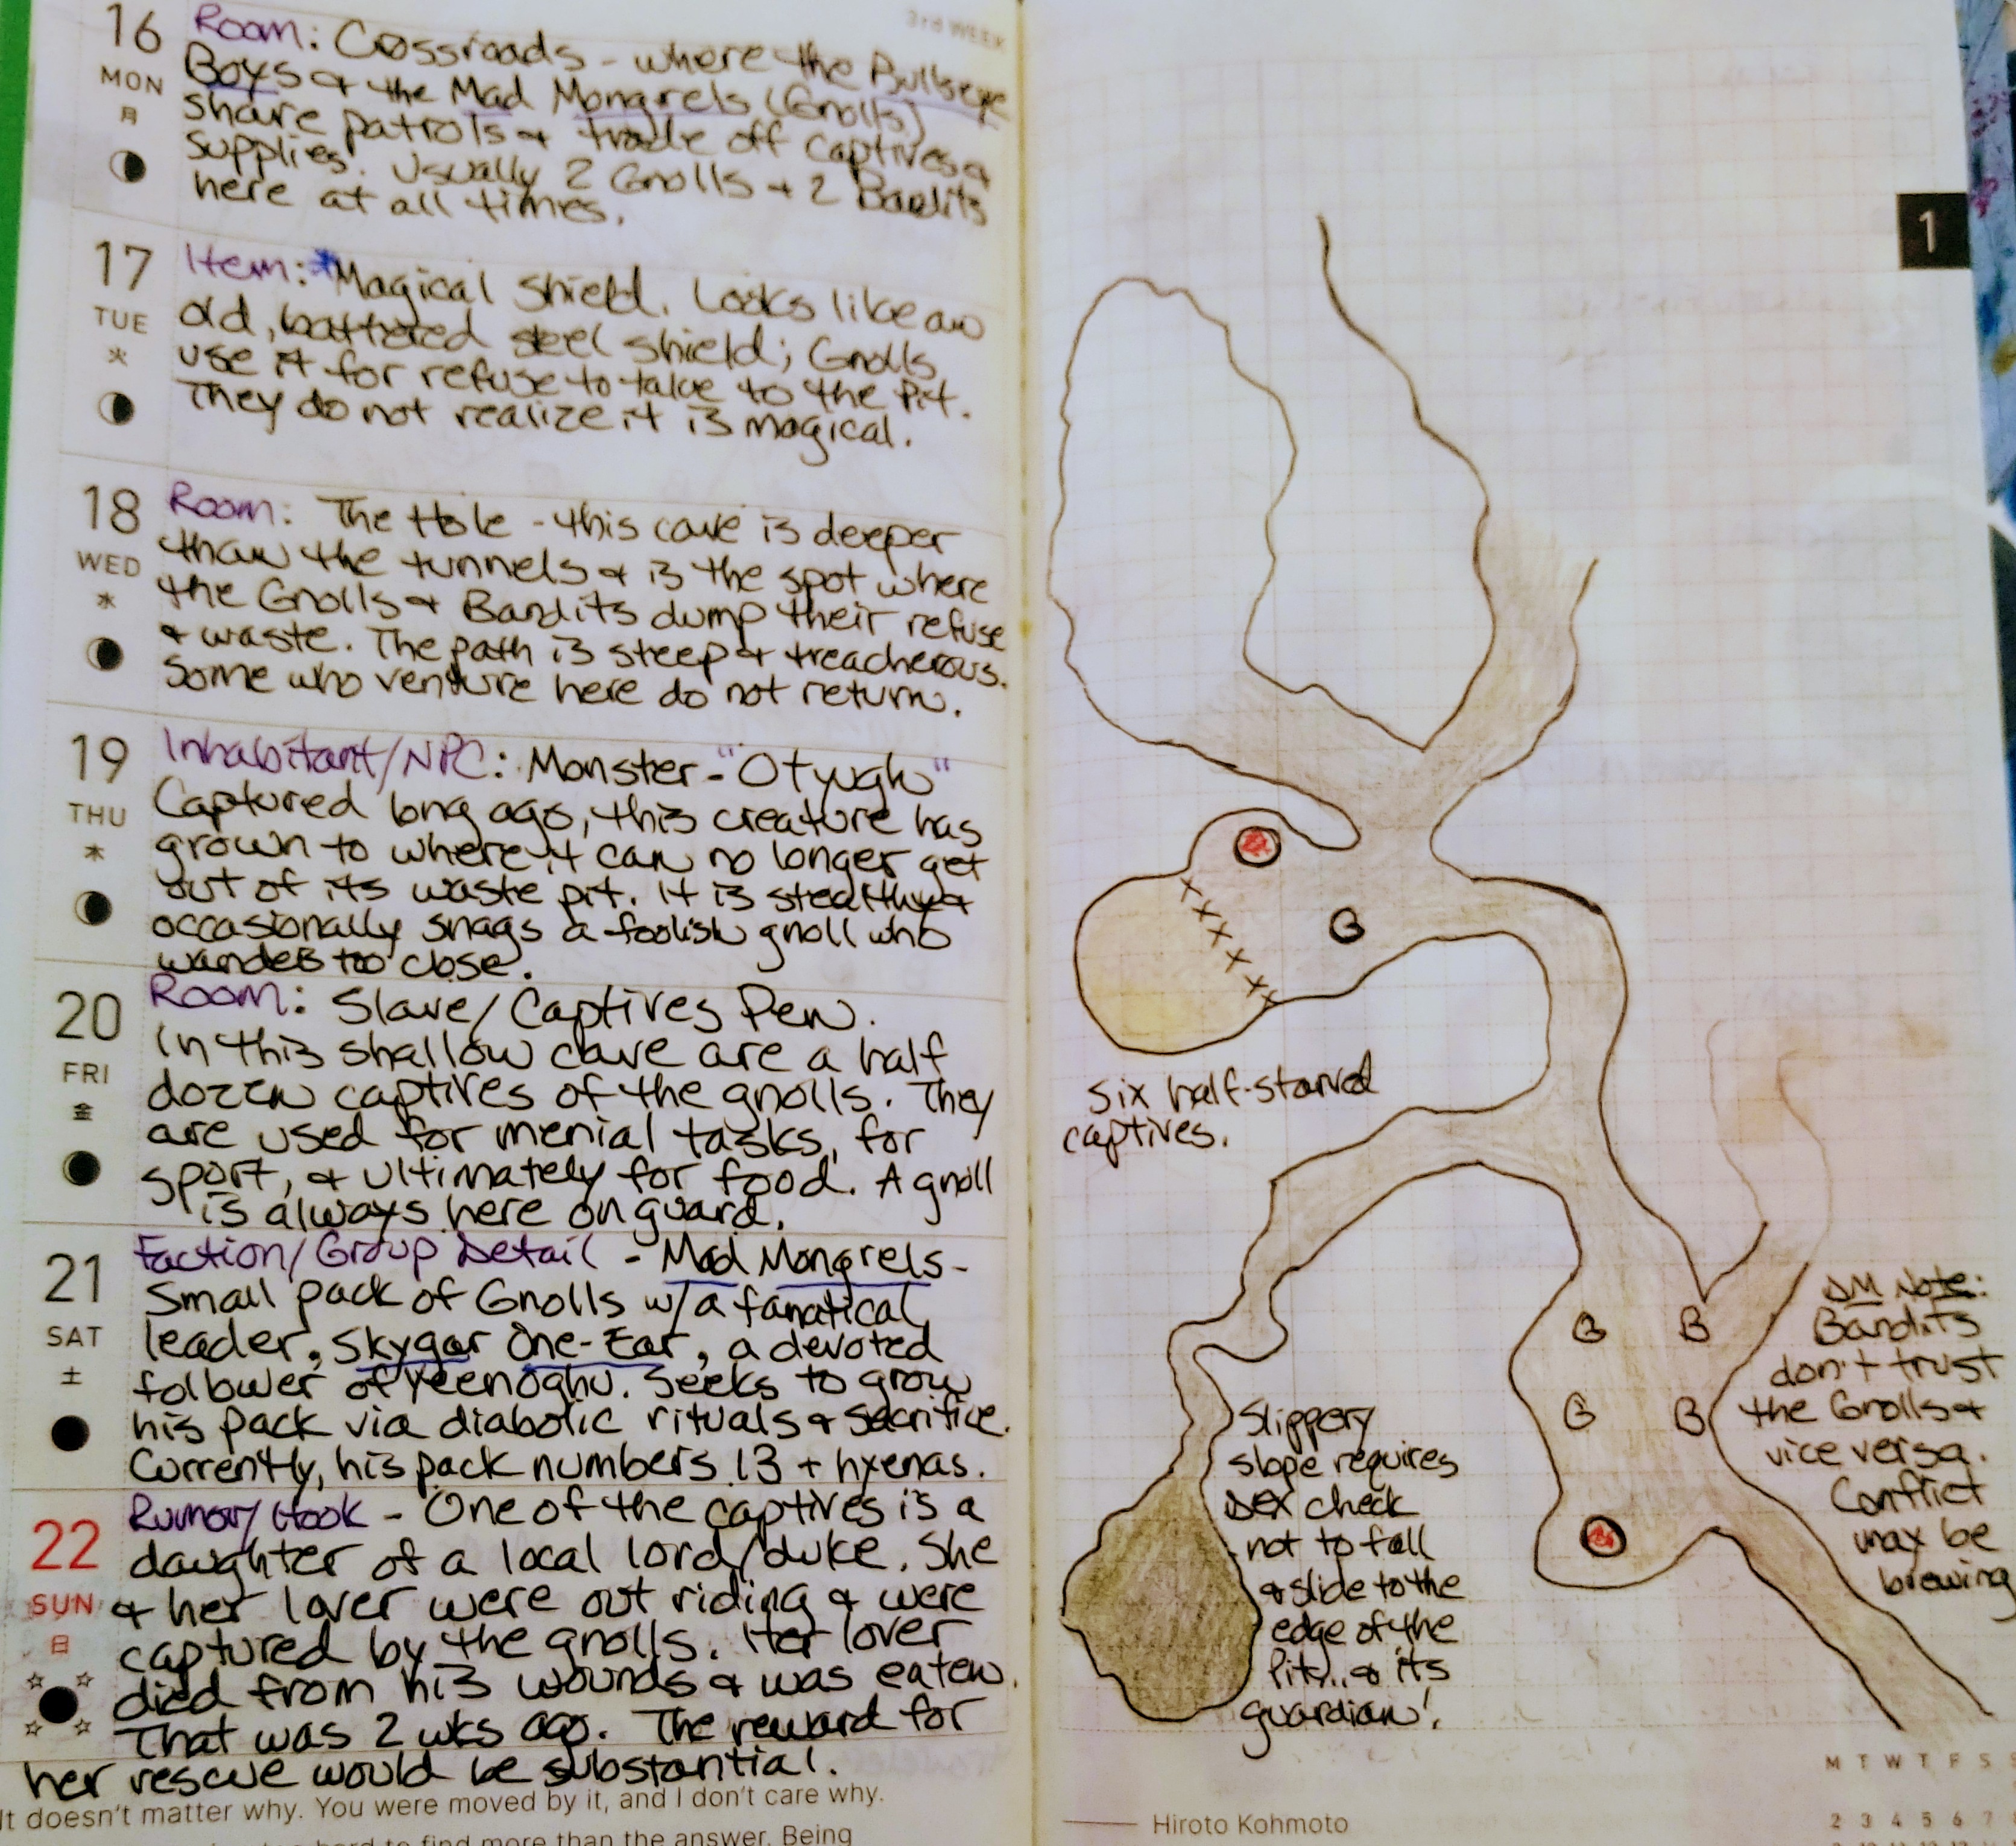 3rd WEEK
16
MON
月
Room: Crossroads - where the Bullseye
Boys & the Mad Mongrels (Gnolls)
share patrols & trade off captives &
supplies. Usually 2 Gnolls + 2 Bandits
here at all times.
17
TUE
火
Item: *Magical Shield. Looks like an
old, battered steel shield; Gnolls
use it for refuse to take to the Pit.
They do not realize it is magical.
18
WED
水
Room: The Hole - this cave is deeper
than the tunnels & is the spot where
the Gnolls & Bandits dump their refuse
& waste. The path is steep & treacherous.
Some who venture here do not return.
19
THU
木
Inhabitant/NPC: Monster - "Otyugh"
Captured long ago, this creature has
grown to where it can no longer get
out of its waste pit. It is stealthy &
occasionally snags a foolish gnoll who
wanders too close.
20
FRI
金
Room: Slave/Captives Pen.
In this shallow cave are a half
dozen captives of the gnolls. They
are used for menial tasks, for
sport, & ultimately for food. A gnoll
is always here on guard.
21
SAT
土
Faction/Group Detail - Mad Mongrels -
Small pack of Gnolls w/a fanatical
leader, Skygar One-Ear, a devoted
follower of Yeenoghu. Seeks to grow
his pack via diabolic rituals & sacrifice.
Currently, his pack numbers 13 + hyenas.
22
SUN
日
Rumor/Hook - One of the captives is a
daughter of a local lord/duke. She
& her lover were out riding & were
captured by the gnolls. Her lover
died from his wounds & was eaten.
That was 2 wks ago. The reward for
her rescue would be substantial.
It doesn't matter why. You were moved by it, and I don't care why.
to find more than the answer. Being
1
G
six half-starved
captives.
G B
G B
DM Note:
Bandits
don't trust
the Gnolls &
vice versa.
Conflict
may be
brewing
Slippery
slope requires
DEX check
not to fall
& slide to the
edge of the
Pit... & its
guardian!
Hiroto Kohmoto
M T W T F S S
2 3 4 5 6 7